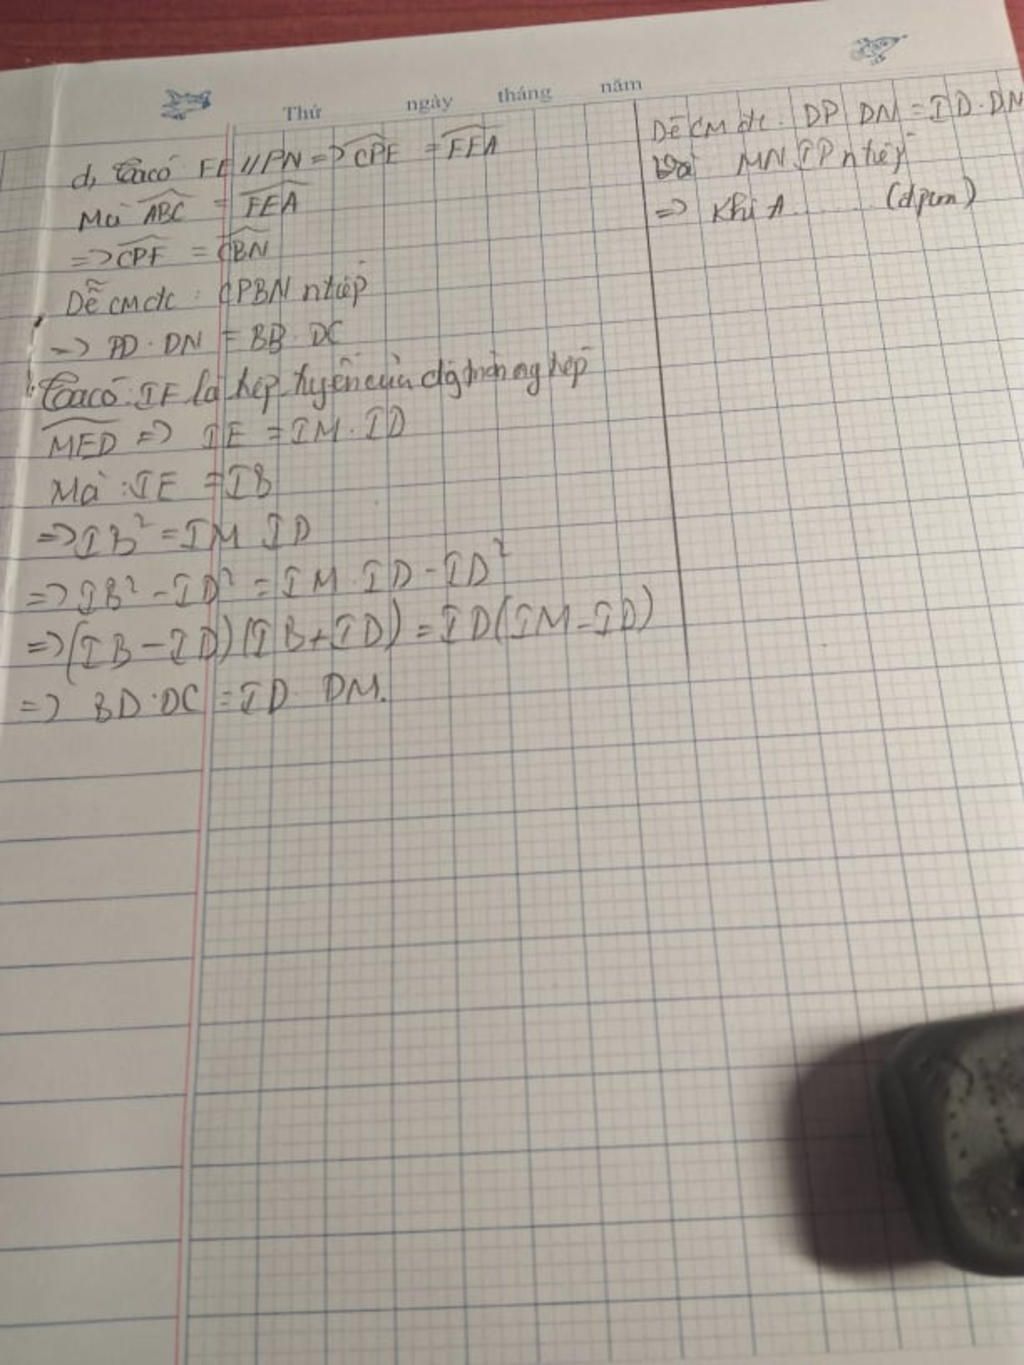 Thứ ngày tháng năm
d, Ta có FE // PN => CPF = FEA
Mà ABC = FEA
=> CPF = CBN
Dễ CM đc : CPBN ntiếp
=> PD . DN = BB . DC
Ta có : IE là tiếp tuyến của đg tròn ng tiếp
MED => IE = IM . ID
Mà : IE = IB
=> IB² = IM ID
=> IB² - ID² = IM . ID - ID²
=> (IB - ID) (IB + ID) = ID (IM - ID)
=> BD . DC = ID . DM.
Dễ CM đc . DP DN = ID . DN
MN IP ntiếp
=> Khi A (đpcm)